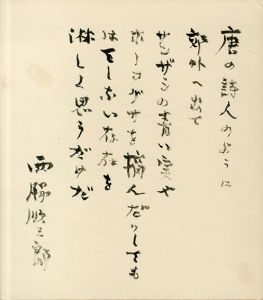 唐の詩人のように
郊外へ出て
サンザシの青い実や
を摘んだりしても
はてしない存在を
淋しく思うだけだ
西脇順三郎